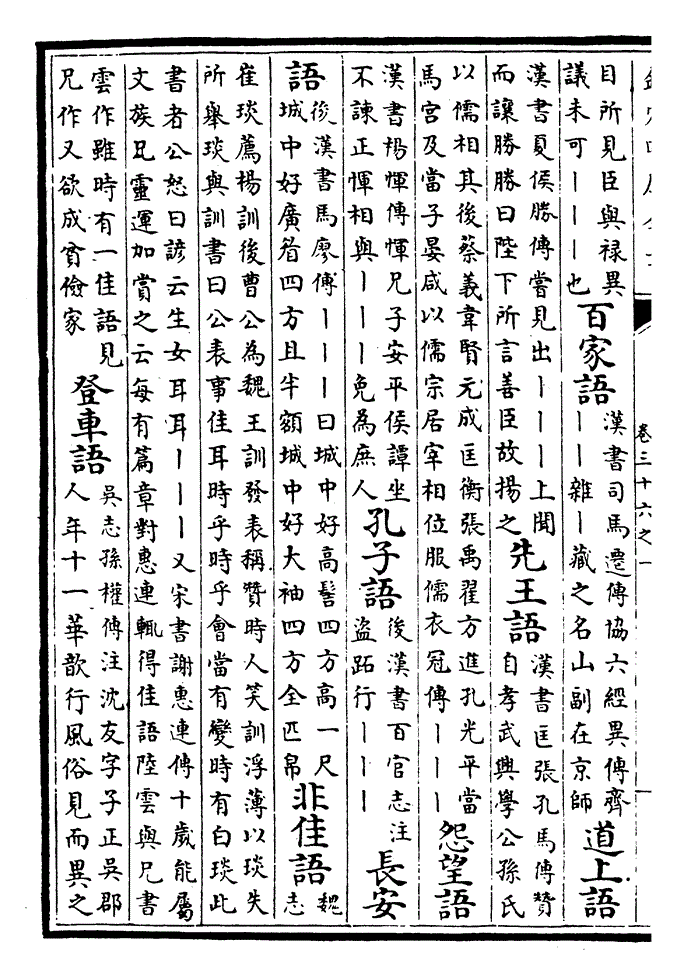 卷三十六之一
目所見臣與祿異
議未可｜｜｜也
百家語
漢書司馬遷傳協六經異傳齊
｜｜雜｜藏之名山副在京師
道上語
漢書夏侯勝傳嘗見出｜｜｜上聞
而讓勝勝曰陛下所言善臣故揚之
先王語
漢書匡張孔馬傳贊
自孝武興學公孫氏
以儒相其後蔡義韋賢元成匡衡張禹翟方進孔光平當
馬宮及當子晏咸以儒宗居宰相位服儒衣冠傳｜｜｜
怨望語
漢書楊惲傳惲兄子安平侯譚坐
不諫正惲相與｜｜｜免為庶人
孔子語
後漢書百官志注
盜跖行｜｜｜
長安
語
後漢書馬廖傳｜｜｜曰城中好高髻四方高一尺
城中好廣眉四方且半額城中好大袖四方全匹帛
非佳語
魏
志
崔琰薦楊訓後曹公為魏王訓發表稱贊時人笑訓浮薄以琰失
所舉琰與訓書曰公表事佳耳時乎時乎會當有變時有白琰此
書者公怒曰諺云生女耳耳｜｜｜又宋書謝惠連傳十歲能屬
文族兄靈運加賞之云每有篇章對惠連輒得佳語陸雲與兄書
雲作雖時有一佳語見
兄作又欲成貧儉家
登車語
吳志孫權傳注沈友字子正吳郡
人年十一華歆行風俗見而異之